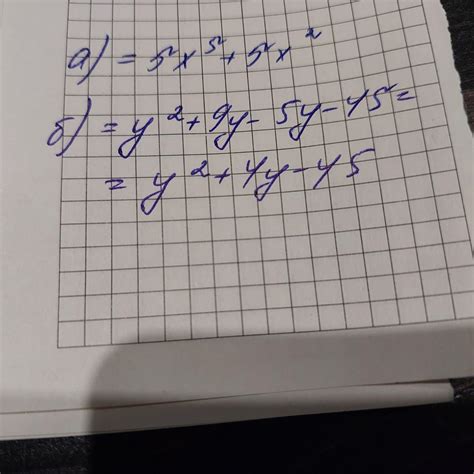 а) = 5x⁵ + 5x²
б) = y² + 9y - 5y - 45 =
= y² + 4y - 45